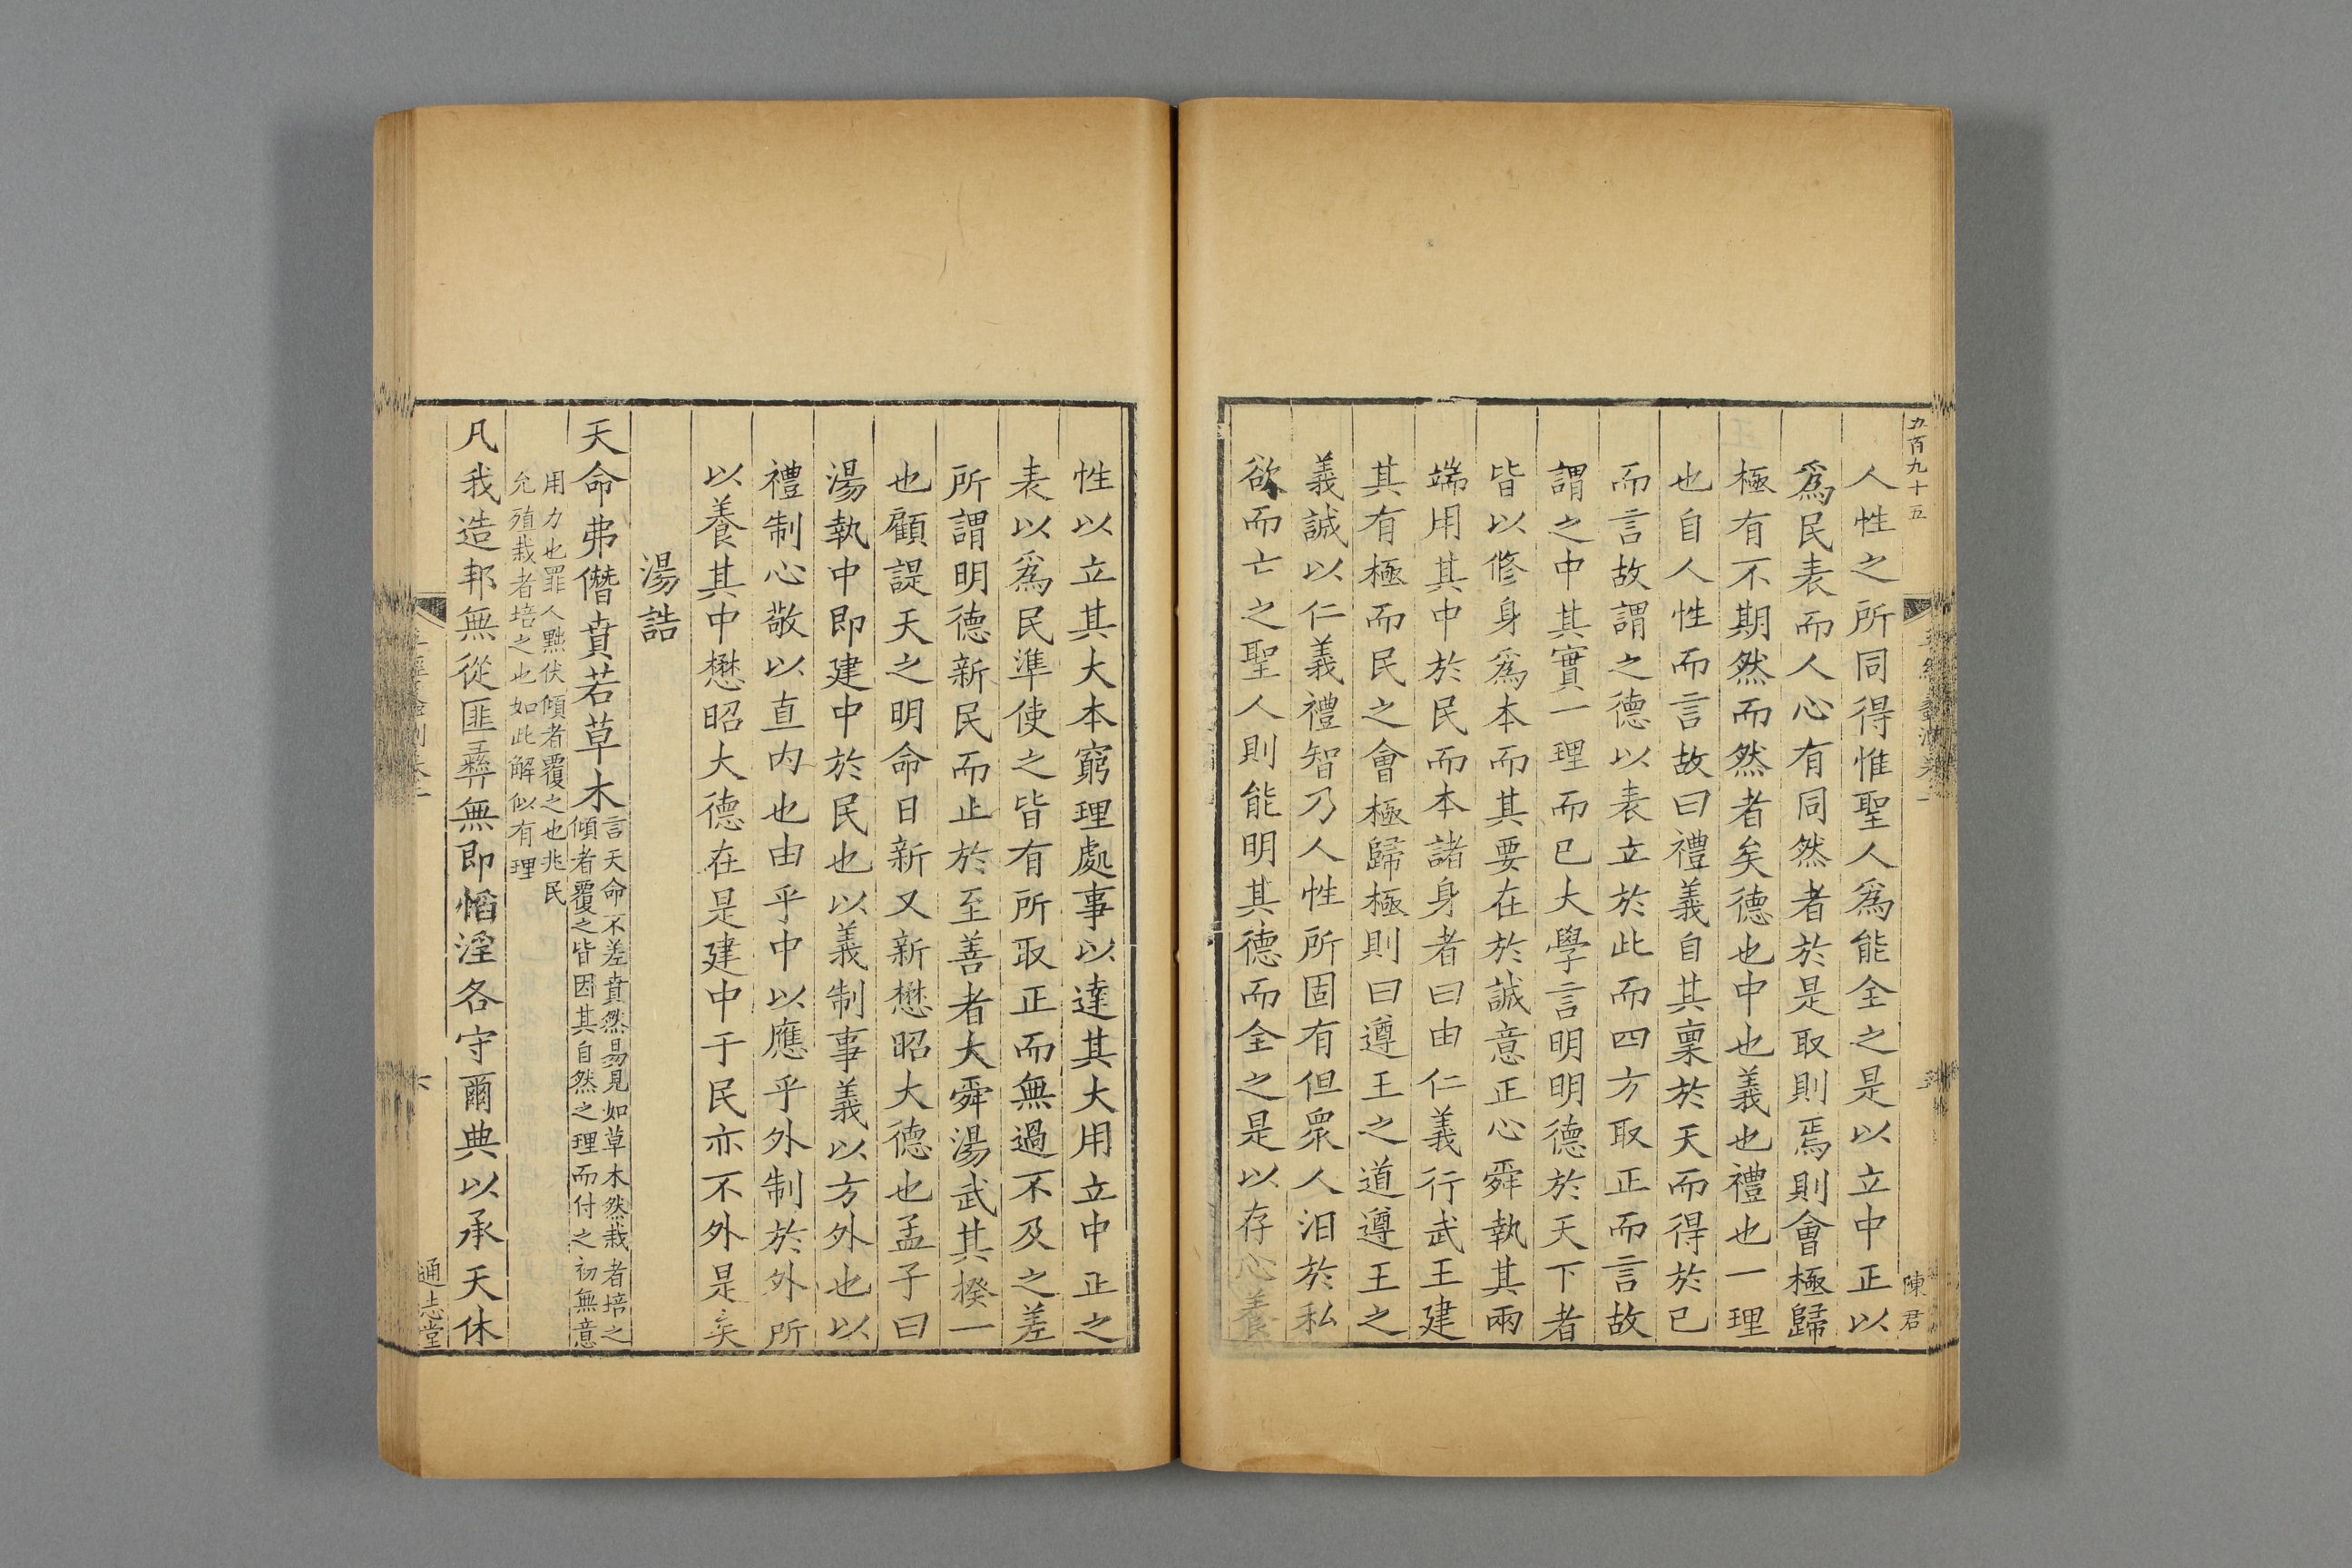 五百九十五
陳君
人性之所同得惟聖人爲能全之是以立中正以
爲民表而人心有同然者於是取則焉則會極歸
極有不期然而然者矣德也中也義也禮也一理
也自人性而言故曰禮義自其稟於天而得於已
而言故謂之德以表立於此而四方取正而言故
謂之中其實一理而已大學言明明德於天下者
皆以修身爲本而其要在於誠意正心舜執其兩
端用其中於民而本諸身者曰由仁義行武王建
其有極而民之會極歸極則曰遵王之道遵王之
義誠以仁義禮智乃人性所固有但衆人汨於私
欲而亡之聖人則能明其德而全之是以存心養
性以立其大本窮理處事以達其大用立中正之
表以爲民準使之皆有所取正而無過不及之差
所謂明德新民而止於至善者大舜湯武其揆一
也顧諟天之明命日新又新懋昭大德也孟子曰
湯執中即建中於民也以義制事義以方外也以
禮制心敬以直内也由乎中以應乎外制於外所
以養其中懋昭大德在是建中于民亦不外是矣
湯誥
天命弗僭賁若草木
言天命不差賁然易見如草木然栽者培之
傾者覆之皆因其自然之理而付之初無意
用力也罪人黜伏傾者覆之也兆民
允殖栽者培之也如此解似有理
凡我造邦無從匪彝無即慆淫各守爾典以承天休
六
通志堂